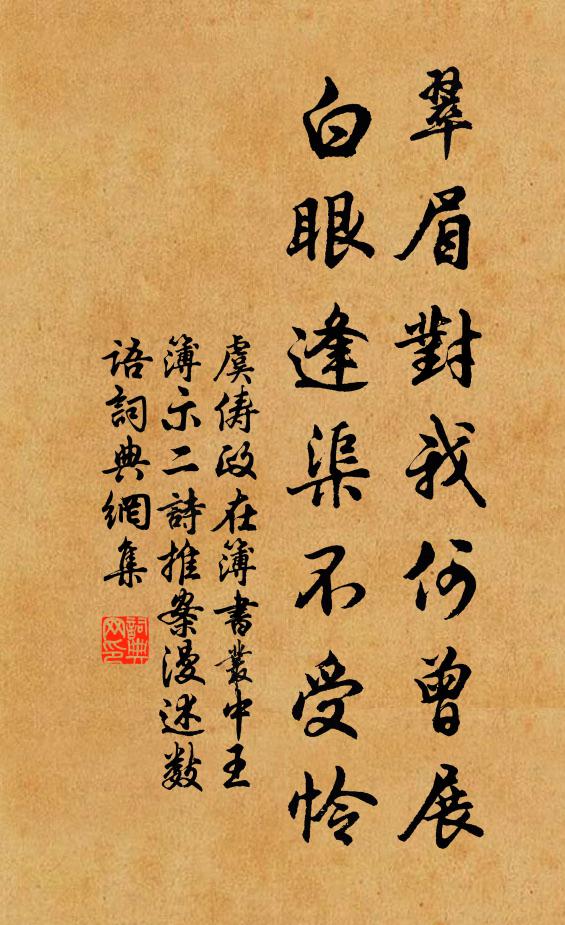 翠眉對我何曾展
白眼逢渠不受怜
虞儔政在簿書叢中王
簿示二詩推案漫述數
語詞典網集
詞典
网印